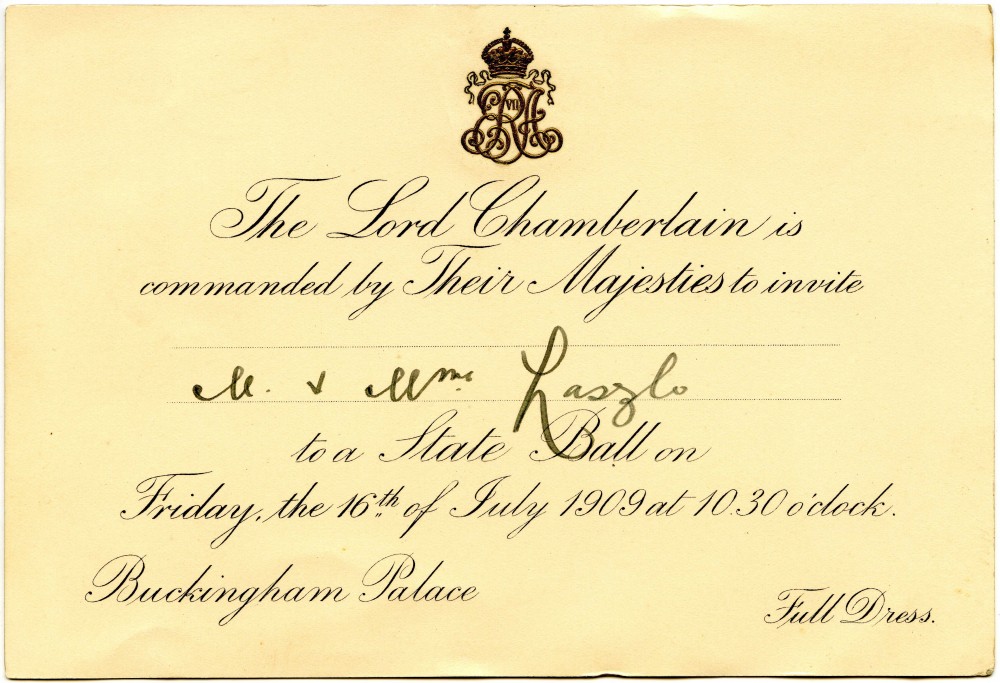 VII
The Lord Chamberlain is
commanded by Their Majesties to invite
M. & Mme Laszlo
to a State Ball on
Friday, the 16th of July 1909 at 10.30 o'clock.
Buckingham Palace
Full Dress.